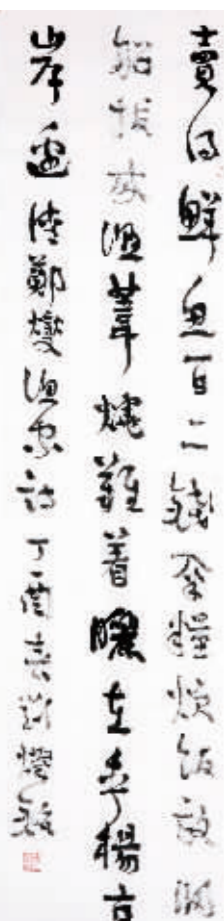 賣得鮮魚百二錢籴糧炊飯放歸
船拔來濕葦燒難着曬在垂楊古
岸邊 陸鄭燮漁家詩 丁酉